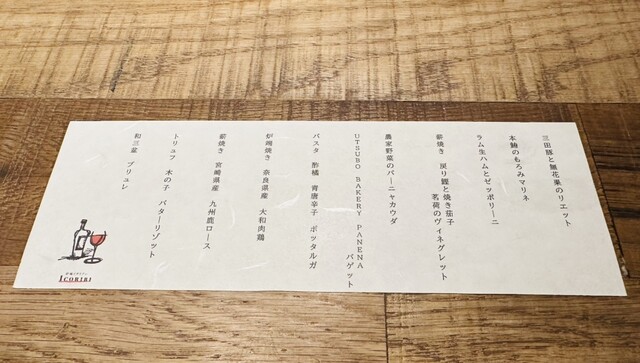 三田豚と無花果のリエット
本鮪のもろみマリネ
ラム生ハムとゼッポリーニ
薪焼き 戻り鰹と焼き茄子
茗荷のヴィネグレット
農家野菜のバーニャカウダ
UTSUBO BAKERY PANENA
バゲット
パスタ 酢橘 青唐辛子 ボッタルガ
炉端焼き 奈良県産 大和肉鶏
薪焼き 宮崎県産 九州鹿ロース
トリュフ 木の子 バターリゾット
和三盆 ブリュレ
ICORIBI